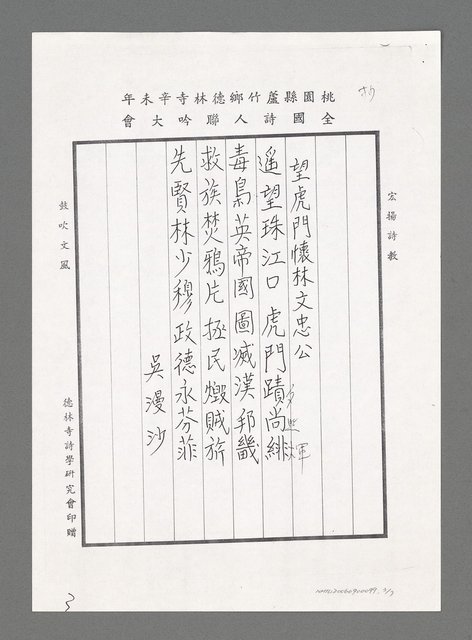 桃園縣蘆竹鄉德林寺辛未年
全國詩人聯吟大會
宏揚詩教
望虎門懷林文忠公
遥望珠江口 虎門蹟尚緋
輝
毒梟英帝國 圖滅漢邦畿
救族焚鴉片 拯民燬賊旂
先賢林少穆 政德永芬菲
吳漫沙
鼓吹文風
德林寺詩學研究會印贈
3